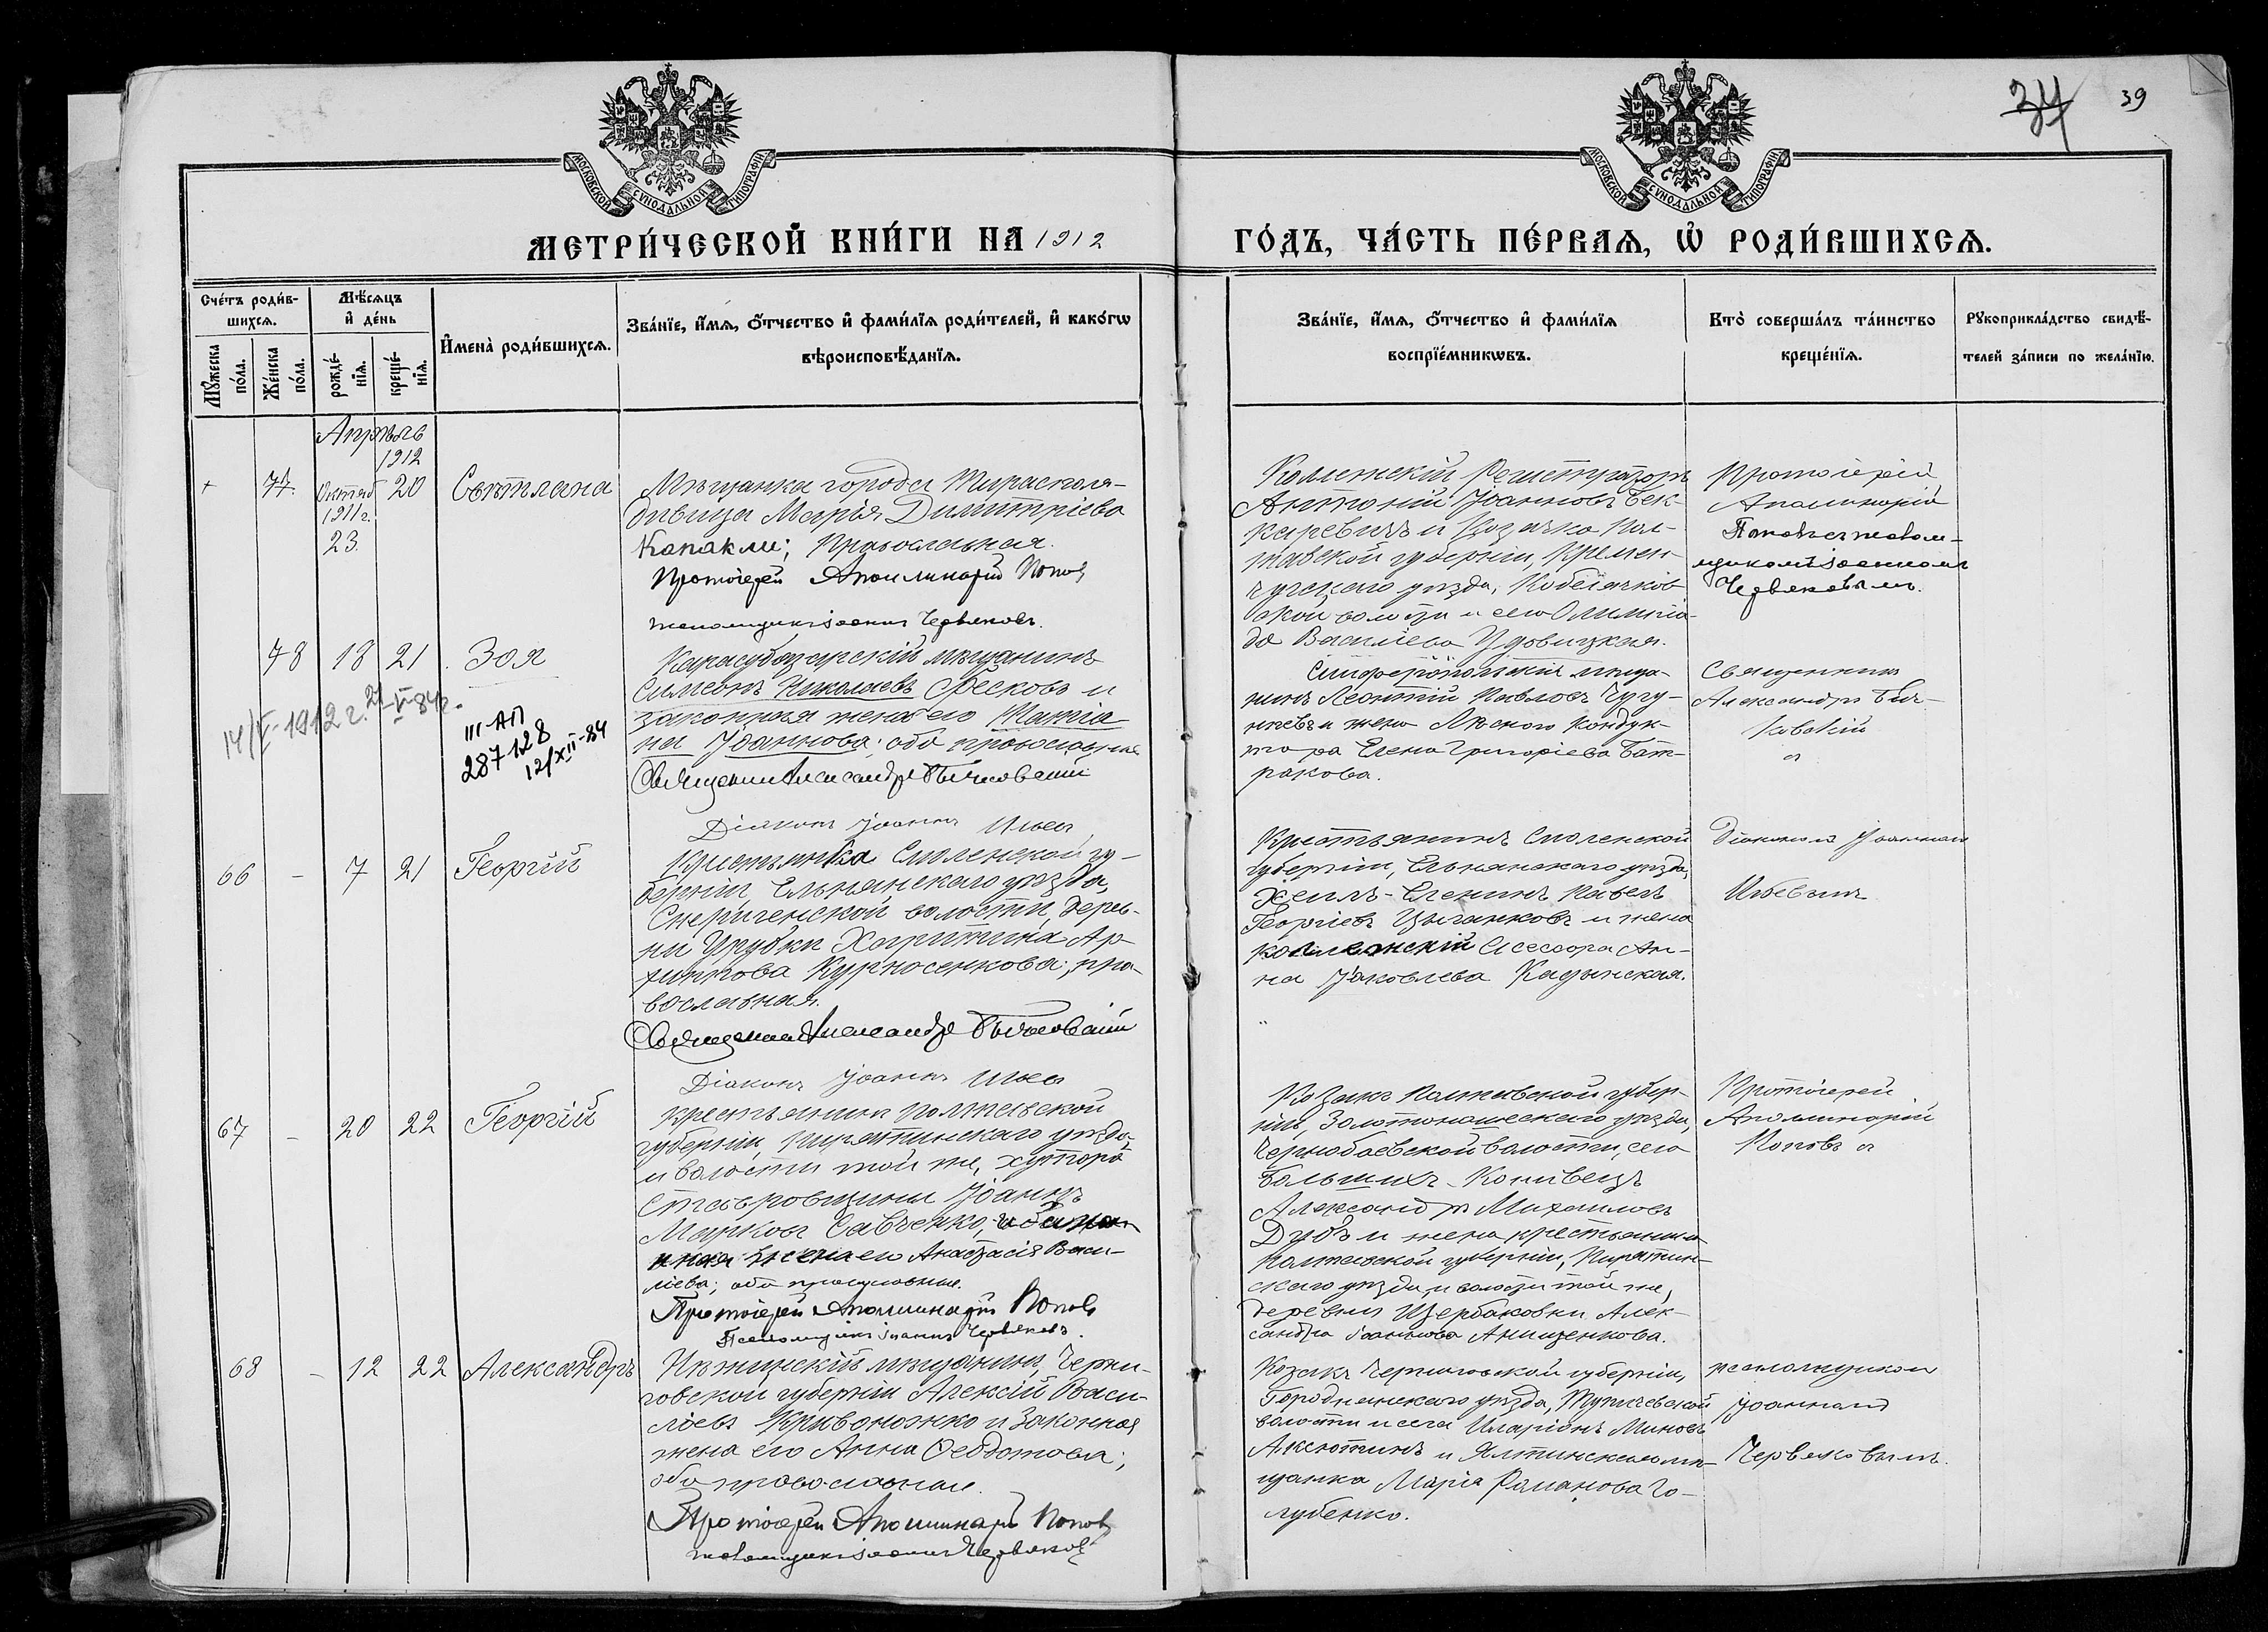 34 39
МОСКОВСКОЙ СѴНОДАЛЬНОЙ ТИПОГРАФІИ
МОСКОВСКОЙ СѴНОДАЛЬНОЙ ТИПОГРАФІИ
МЕТРИ́ЧЕСКОЙ КНИ́ГИ НА 1912
ГО́ДЪ, ЧА́СТЬ ПЕ́РВАѦ, Ѡ҆ РОДИ́ВШИХСѦ.
Сче́тъ роди́в-
шихсѧ.
Мꙋ́жеска по́ла.
Же́нска по́ла.
Мѣ́сѧцъ
и҆ де́нь
рожде́-
нїѧ.
креще́-
нїѧ.
И҆мена̀ роди́вшихсѧ.
Зва́нїе, и҆́мѧ, ѻ҆́тчество и҆ фами́лїѧ роди́телей, и҆ како́гѡ
вѣроисповѣ́данїѧ.
Зва́нїе, и҆́мѧ, ѻ҆́тчество и҆ фами́лїѧ
воспрїе́мникѡвъ.
Кто̀ соверша́лъ та́инство
креще́нїѧ.
Рꙋкоприкла́дство свидѣ́-
телей за́писи по жела́нїю.
Апрѣль
1912
77. Октяб 20 Свѣтлана
1911 г.
23.
Мѣщанка города Тирасполя
дѣвица Марія Димитріева
Капакли; православная.
Протоіерей Аполлинарій Поповъ
псаломщикъ Іоаннъ Червяковъ.
Коллежскій Регистраторъ
Антоній Іоанновъ Бек-
каревичъ и козачка Пол-
тавской губерніи, Кремен-
чугскаго уѣзда, Кобелячков-
ской волости и села Олимпіа-
да Васильева Удовицкая.
Протоіерей
Аполлинарій
Поповъ с псалом-
щикомъ Іоанномъ
Червяковымъ.
78 18 21 Зоя
14/V-1912 г. 21-V-84г.
III-АП
287128
12/XII-84
Карасубазарскій мѣщанинъ
Симеонъ Николаевъ Фесковъ и
законная жена его Татіа-
на Іоаннова; оба православные
Священникъ Александръ Бычковскій
Діаконъ Іоаннъ Ильевъ
Симферопольскій мѣща-
нинъ Леонтій Павловъ Чугу-
нкевъ и жена Лѣсного Кондук-
тора Елена Григоріева Бат-
ракова.
Священникъ
Александръ Быч-
ковскій
с
66 - 7 21 Георгій
Крестьянка Смоленской гу-
берніи, Ельнянскаго уѣзда,
волости, дерев-
ни Харитина Ар-
хипова Курносенкова; пра-
вославная.
Священникъ Александръ Бычковскій
Діаконъ Іоаннъ Ильевъ
Крестьянинъ Смоленской
губерніи, Ельнянскаго уѣзда,
Павелъ
Георгіевъ Цыганковъ и жена
коллежскій Асессора Ан-
на Яковлева Кадынская.
Діакономъ Іоанномъ
Ильевымъ
67 - 20 22 Георгій
крестьянинъ Полтавской
губерніи, Пирятинскаго уѣзда
и волости той же, хутора
Ставровщины Іоаннъ
Марковъ Савченко, и закон-
ная жена его Анастасія Васи-
льева; оба православные.
Протоіерей Аполлинарій Поповъ
Псаломщикъ Іоаннъ Червяковъ.
Козакъ Полтавской губер-
ніи, Золотоношескаго уѣзда,
Чернобаевской волости, села
Большихъ-Конивецъ
Александръ Михайловъ
Дубъ и жена крестьянина
Полтавской губерніи, Пирятин-
скаго уѣзда, и волости той же,
деревни Щербаковки Алек-
сандра Іоаннова Анищенкова.
Протоіерей
Аполлинарій
Поповъ с
68 - 12 22 Александръ
Нѣжинскій мѣщанинъ, Черни-
говской губерніи Алексій Васи-
ліевъ Кривоножко и законная
жена его Анна Феодотова;
оба православные.
Протоіерей Аполлинарій Поповъ
псаломщикъ Іоаннъ Червяковъ
Козакъ Черниговской губерніи,
Городнянскаго уѣзда, Тупичевской
волости и села Иларіонъ Миновъ
Аксютинъ и Ялтинская мѣ-
щанка Марія Романова Го-
лубенко.
псаломщикомъ
Іоанномъ
Червяковымъ.